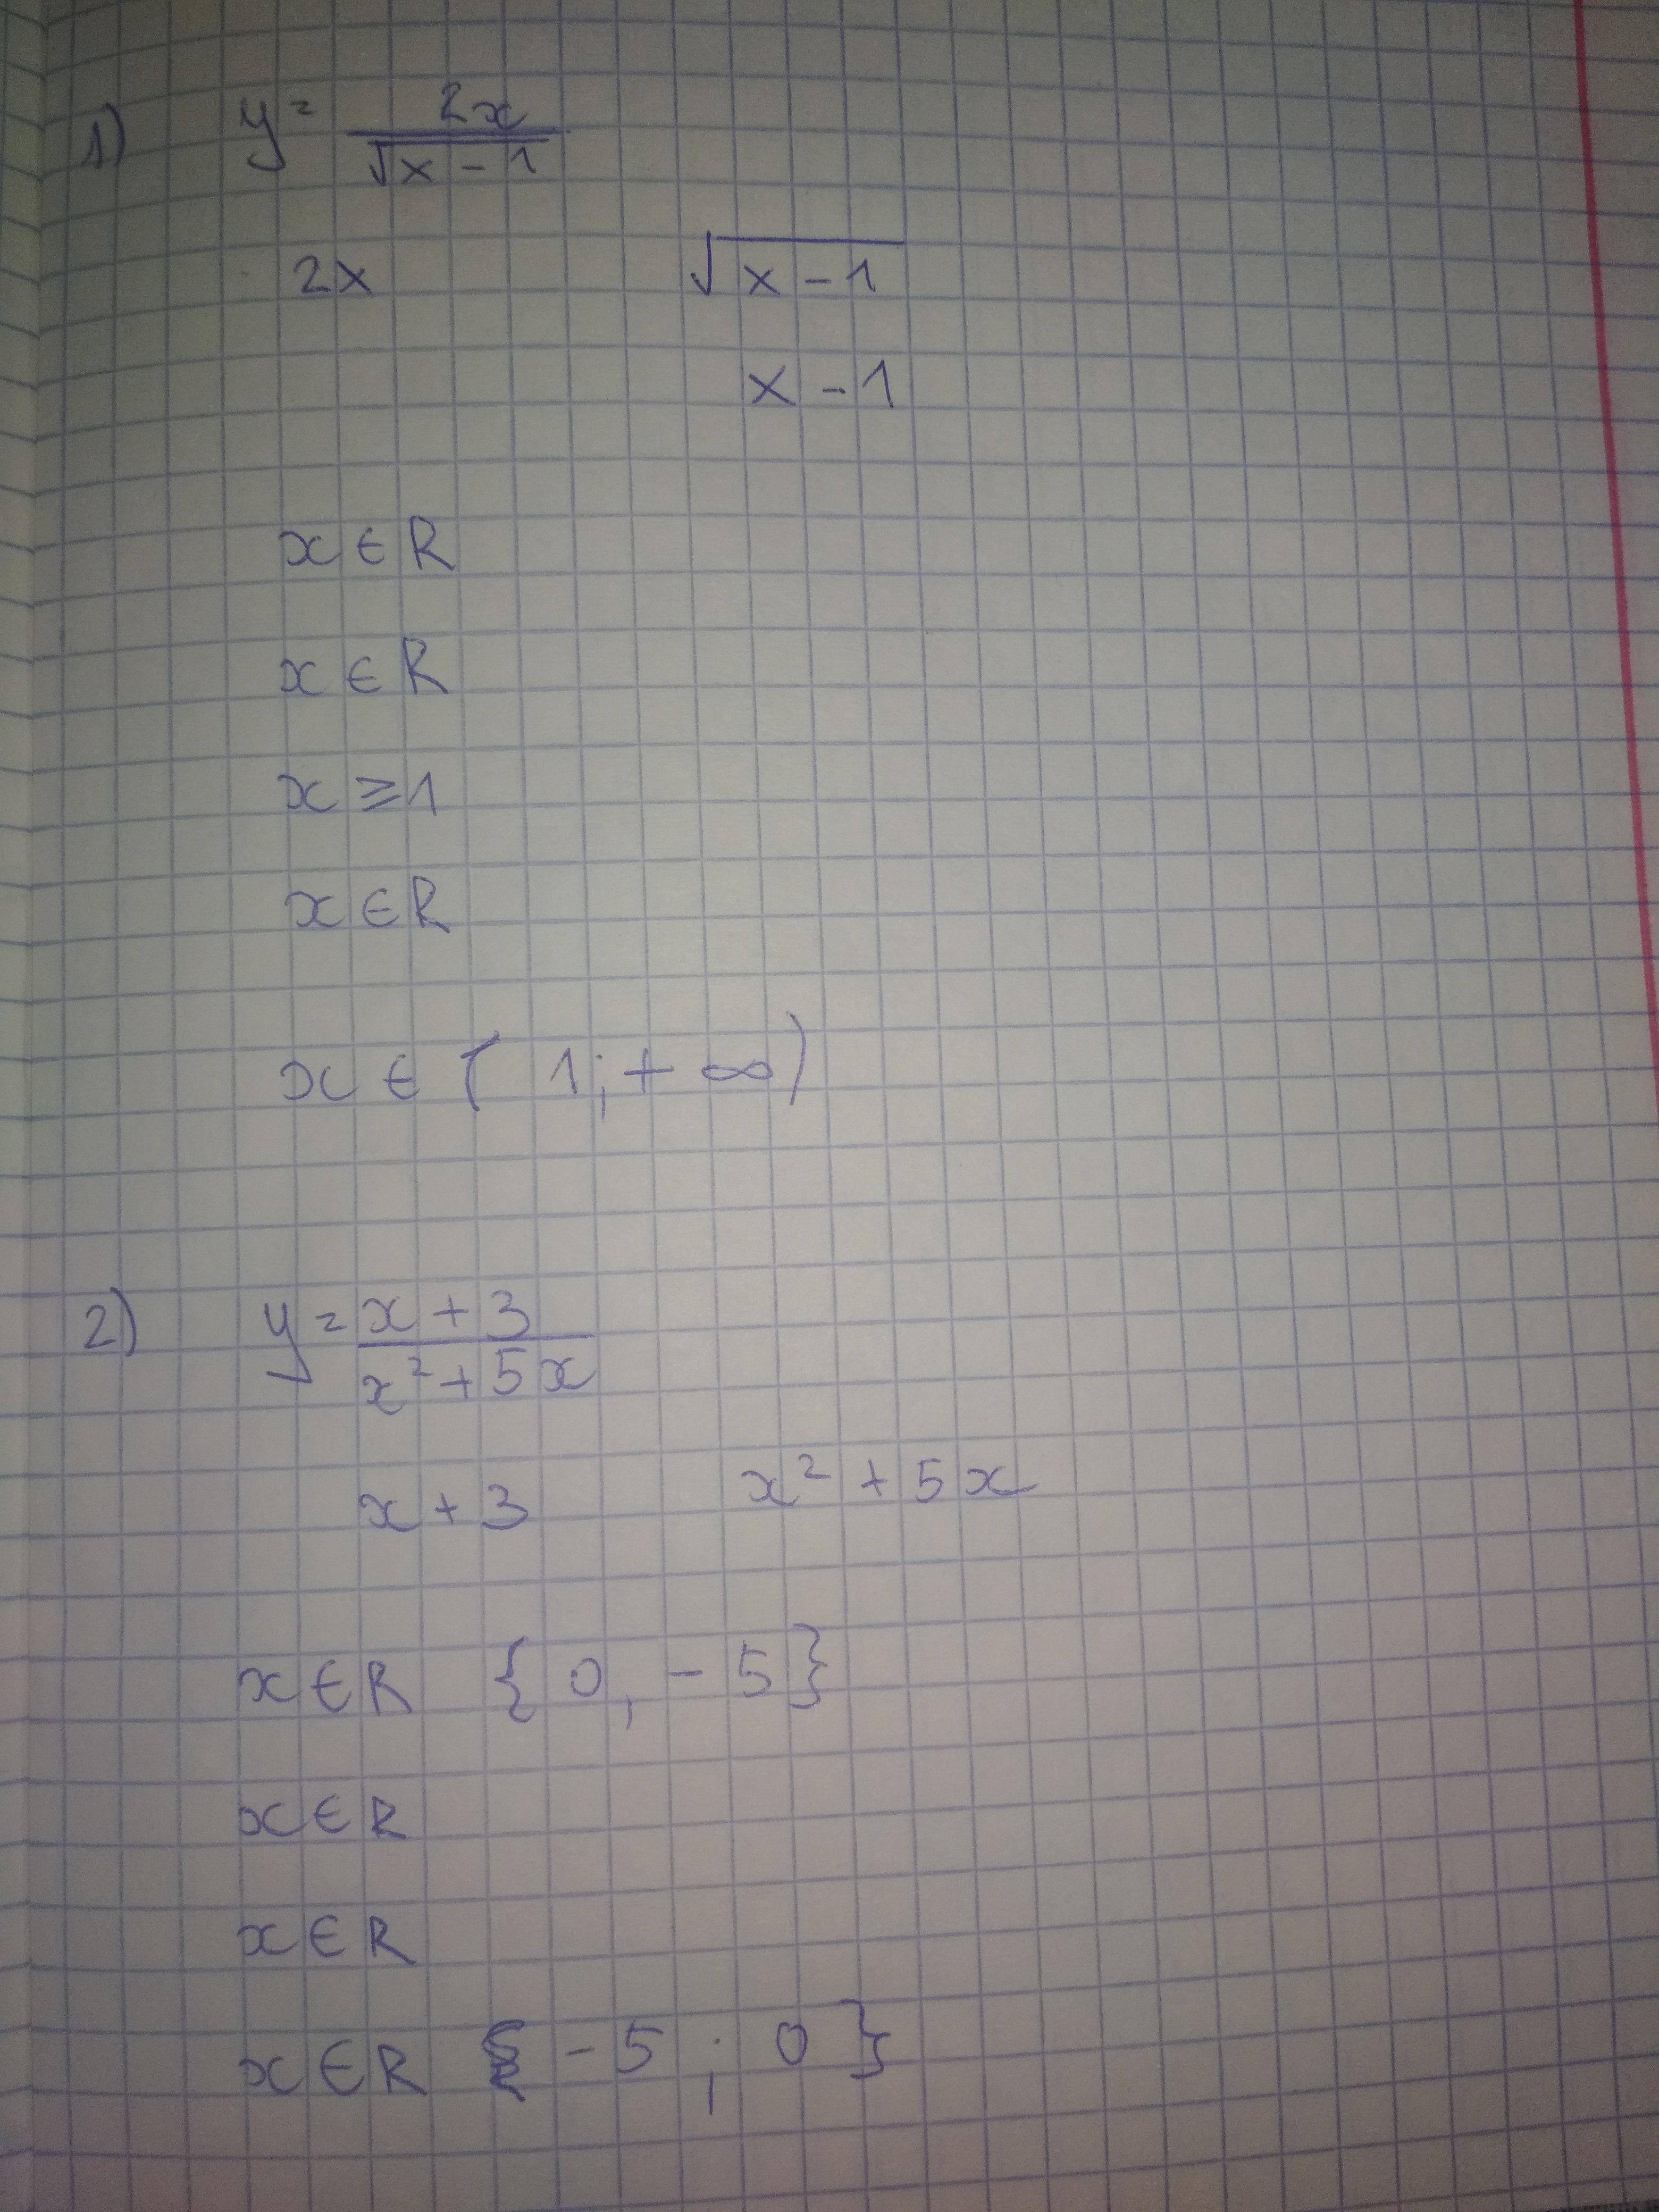 1) y = 2x
√x - 1
2x √x - 1
x - 1
x ∈ R
x ∈ R
x ≥ 1
x ∈ R
x ∈ ( 1; + ∞)
2) y = x + 3
x² + 5x
x + 3 x² + 5x
x ∈ R { 0, - 5}
x ∈ R
x ∈ R
x ∈ R { - 5 ; 0 }